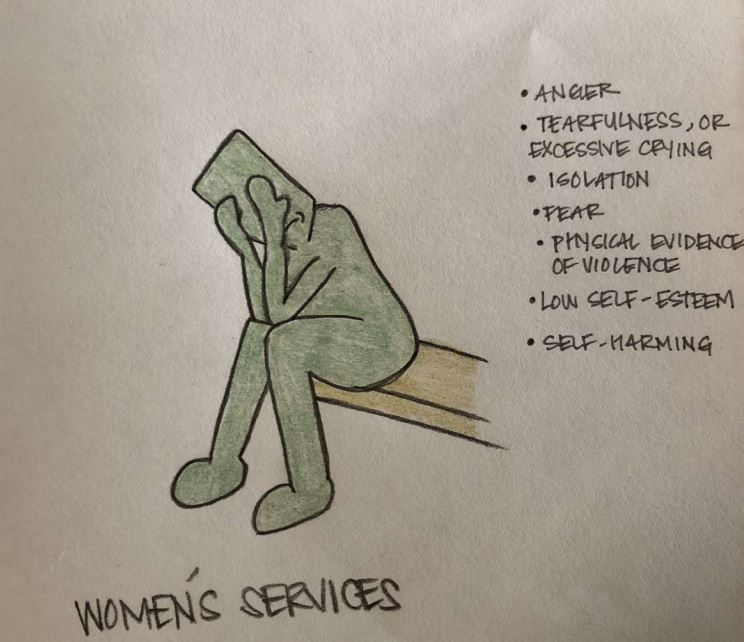 • ANGER
• TEARFULNESS, OR
EXCESSIVE CRYING
• ISOLATION
• FEAR
• PHYSICAL EVIDENCE
OF VIOLENCE
• LOW SELF-ESTEEM
• SELF-HARMING
WOMEN'S SERVICES